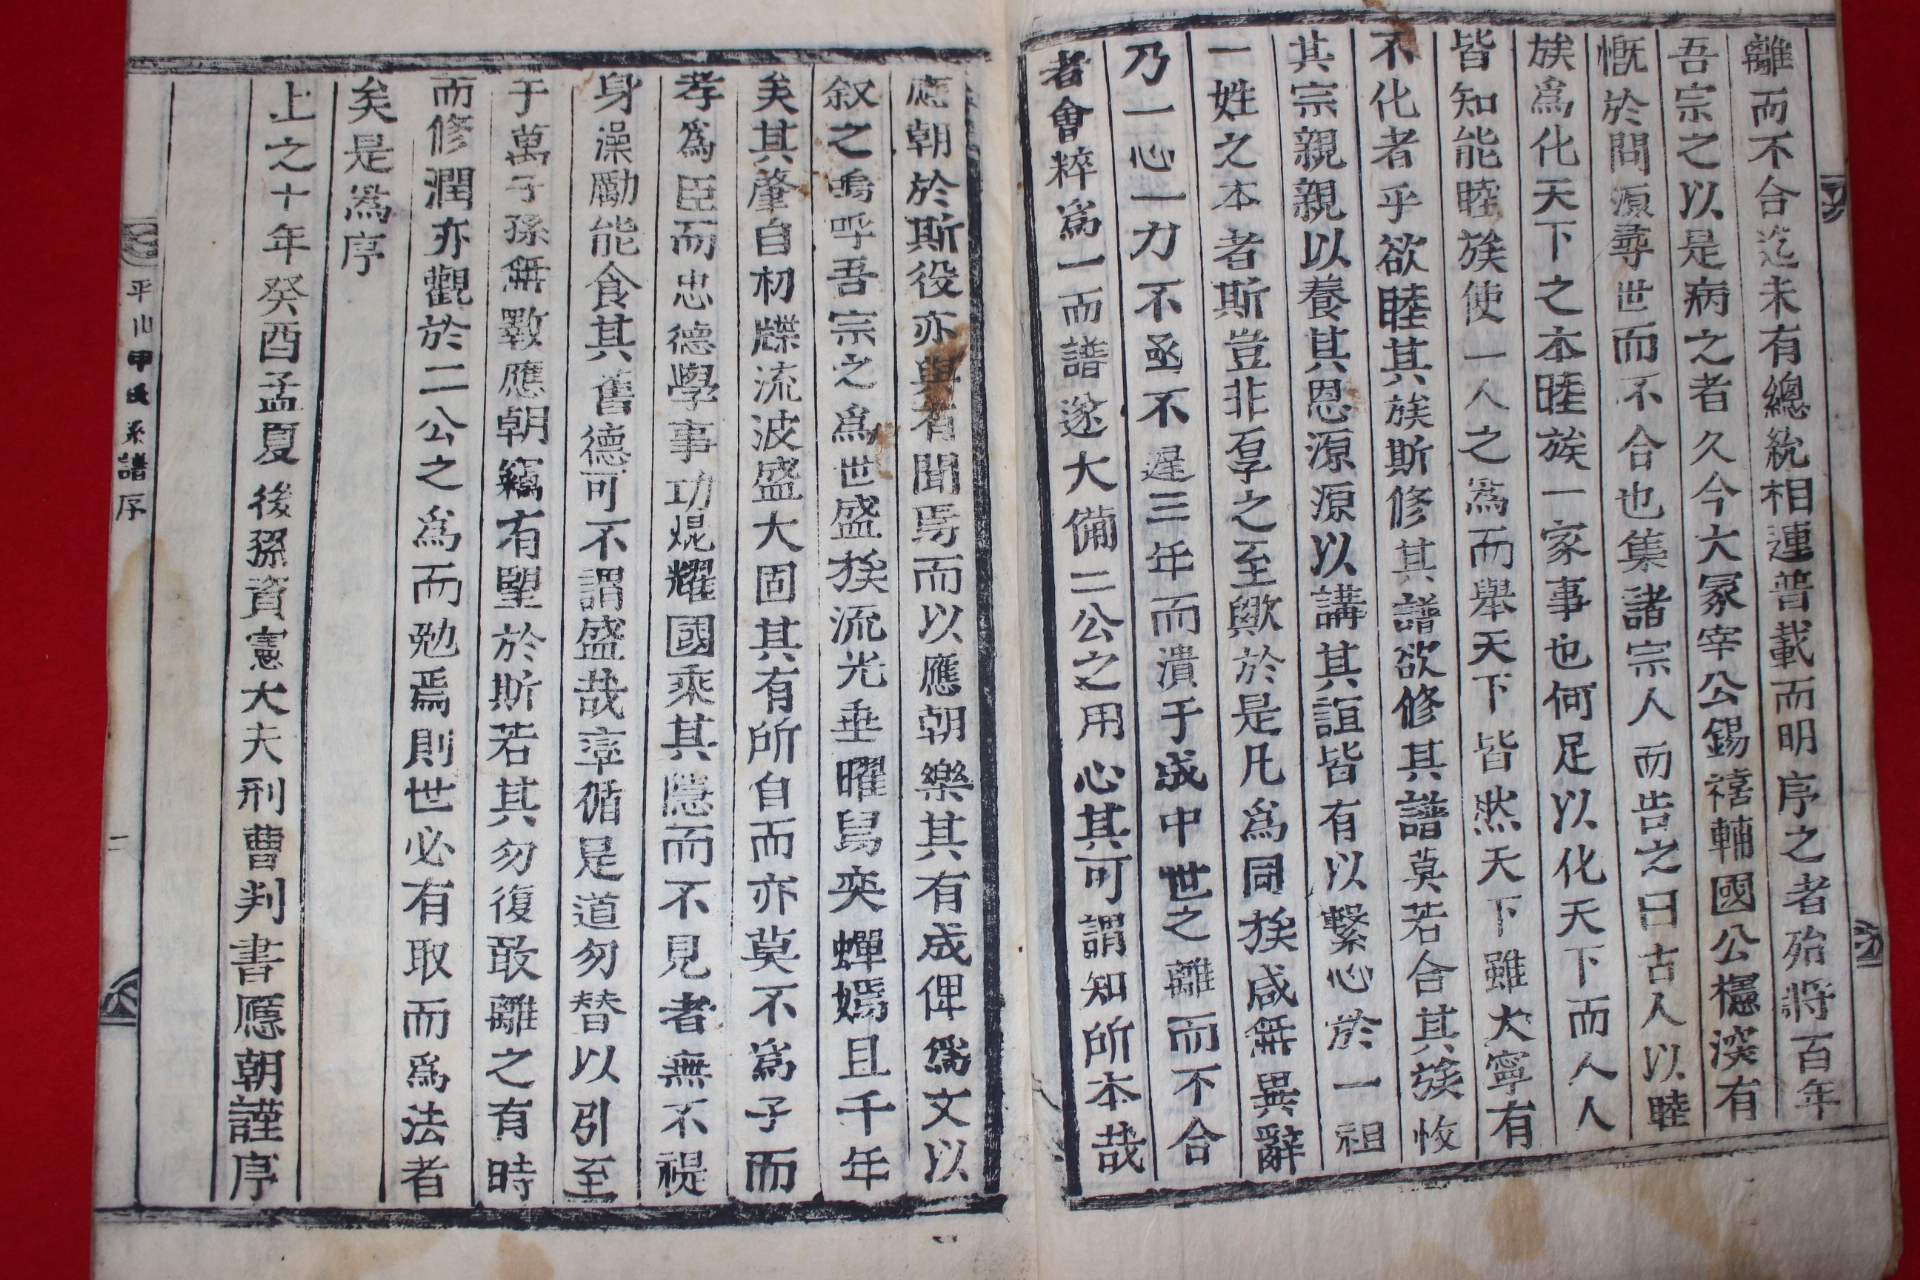 離而不合迄未有總統相連普載而明序之者殆將百年
吾宗之以是病之者久今大冢宰公錫禧輔國公櫶深有
慨於問源尋世而不合也集諸宗人而告之曰古人以睦
族爲化天下之本睦族一家事也何足以化天下而人人
皆知能睦族使一人之爲而舉天下皆然天下雖大寧有
不化者乎欲睦其族斯修其譜欲修其譜莫若合其族收
其宗親親以養其恩源源以講其誼皆有以繫心於一祖
一姓之本者斯豈非厚之至歟於是凡爲同族咸無異辭
乃一心一力不亟不遲三年而潰于成中世之離而不合
者會粹爲一而譜遂大備二公之用心其可謂知所本哉
應朝於斯役亦與有聞焉而以應朝樂其有成俾爲文以
叙之嗚呼吾宗之爲世盛族流光垂曜舃奕蟬嫣且千年
矣其肇自初牒流波盛大固其有所自而亦莫不爲子而
孝爲臣而忠德學事功焜耀國乘其隱而不見者無不禔
身澡勵能食其舊德可不謂盛哉率循是道勿替以引至
于萬子孫無斁應朝竊有望於斯若其勿復敢離之有時
而修潤亦觀於二公之爲而勉焉則世必有取而爲法者
矣是爲序
上之十年癸酉孟夏後孫資憲大夫刑曹判書應朝謹序
平山申氏系譜序
二